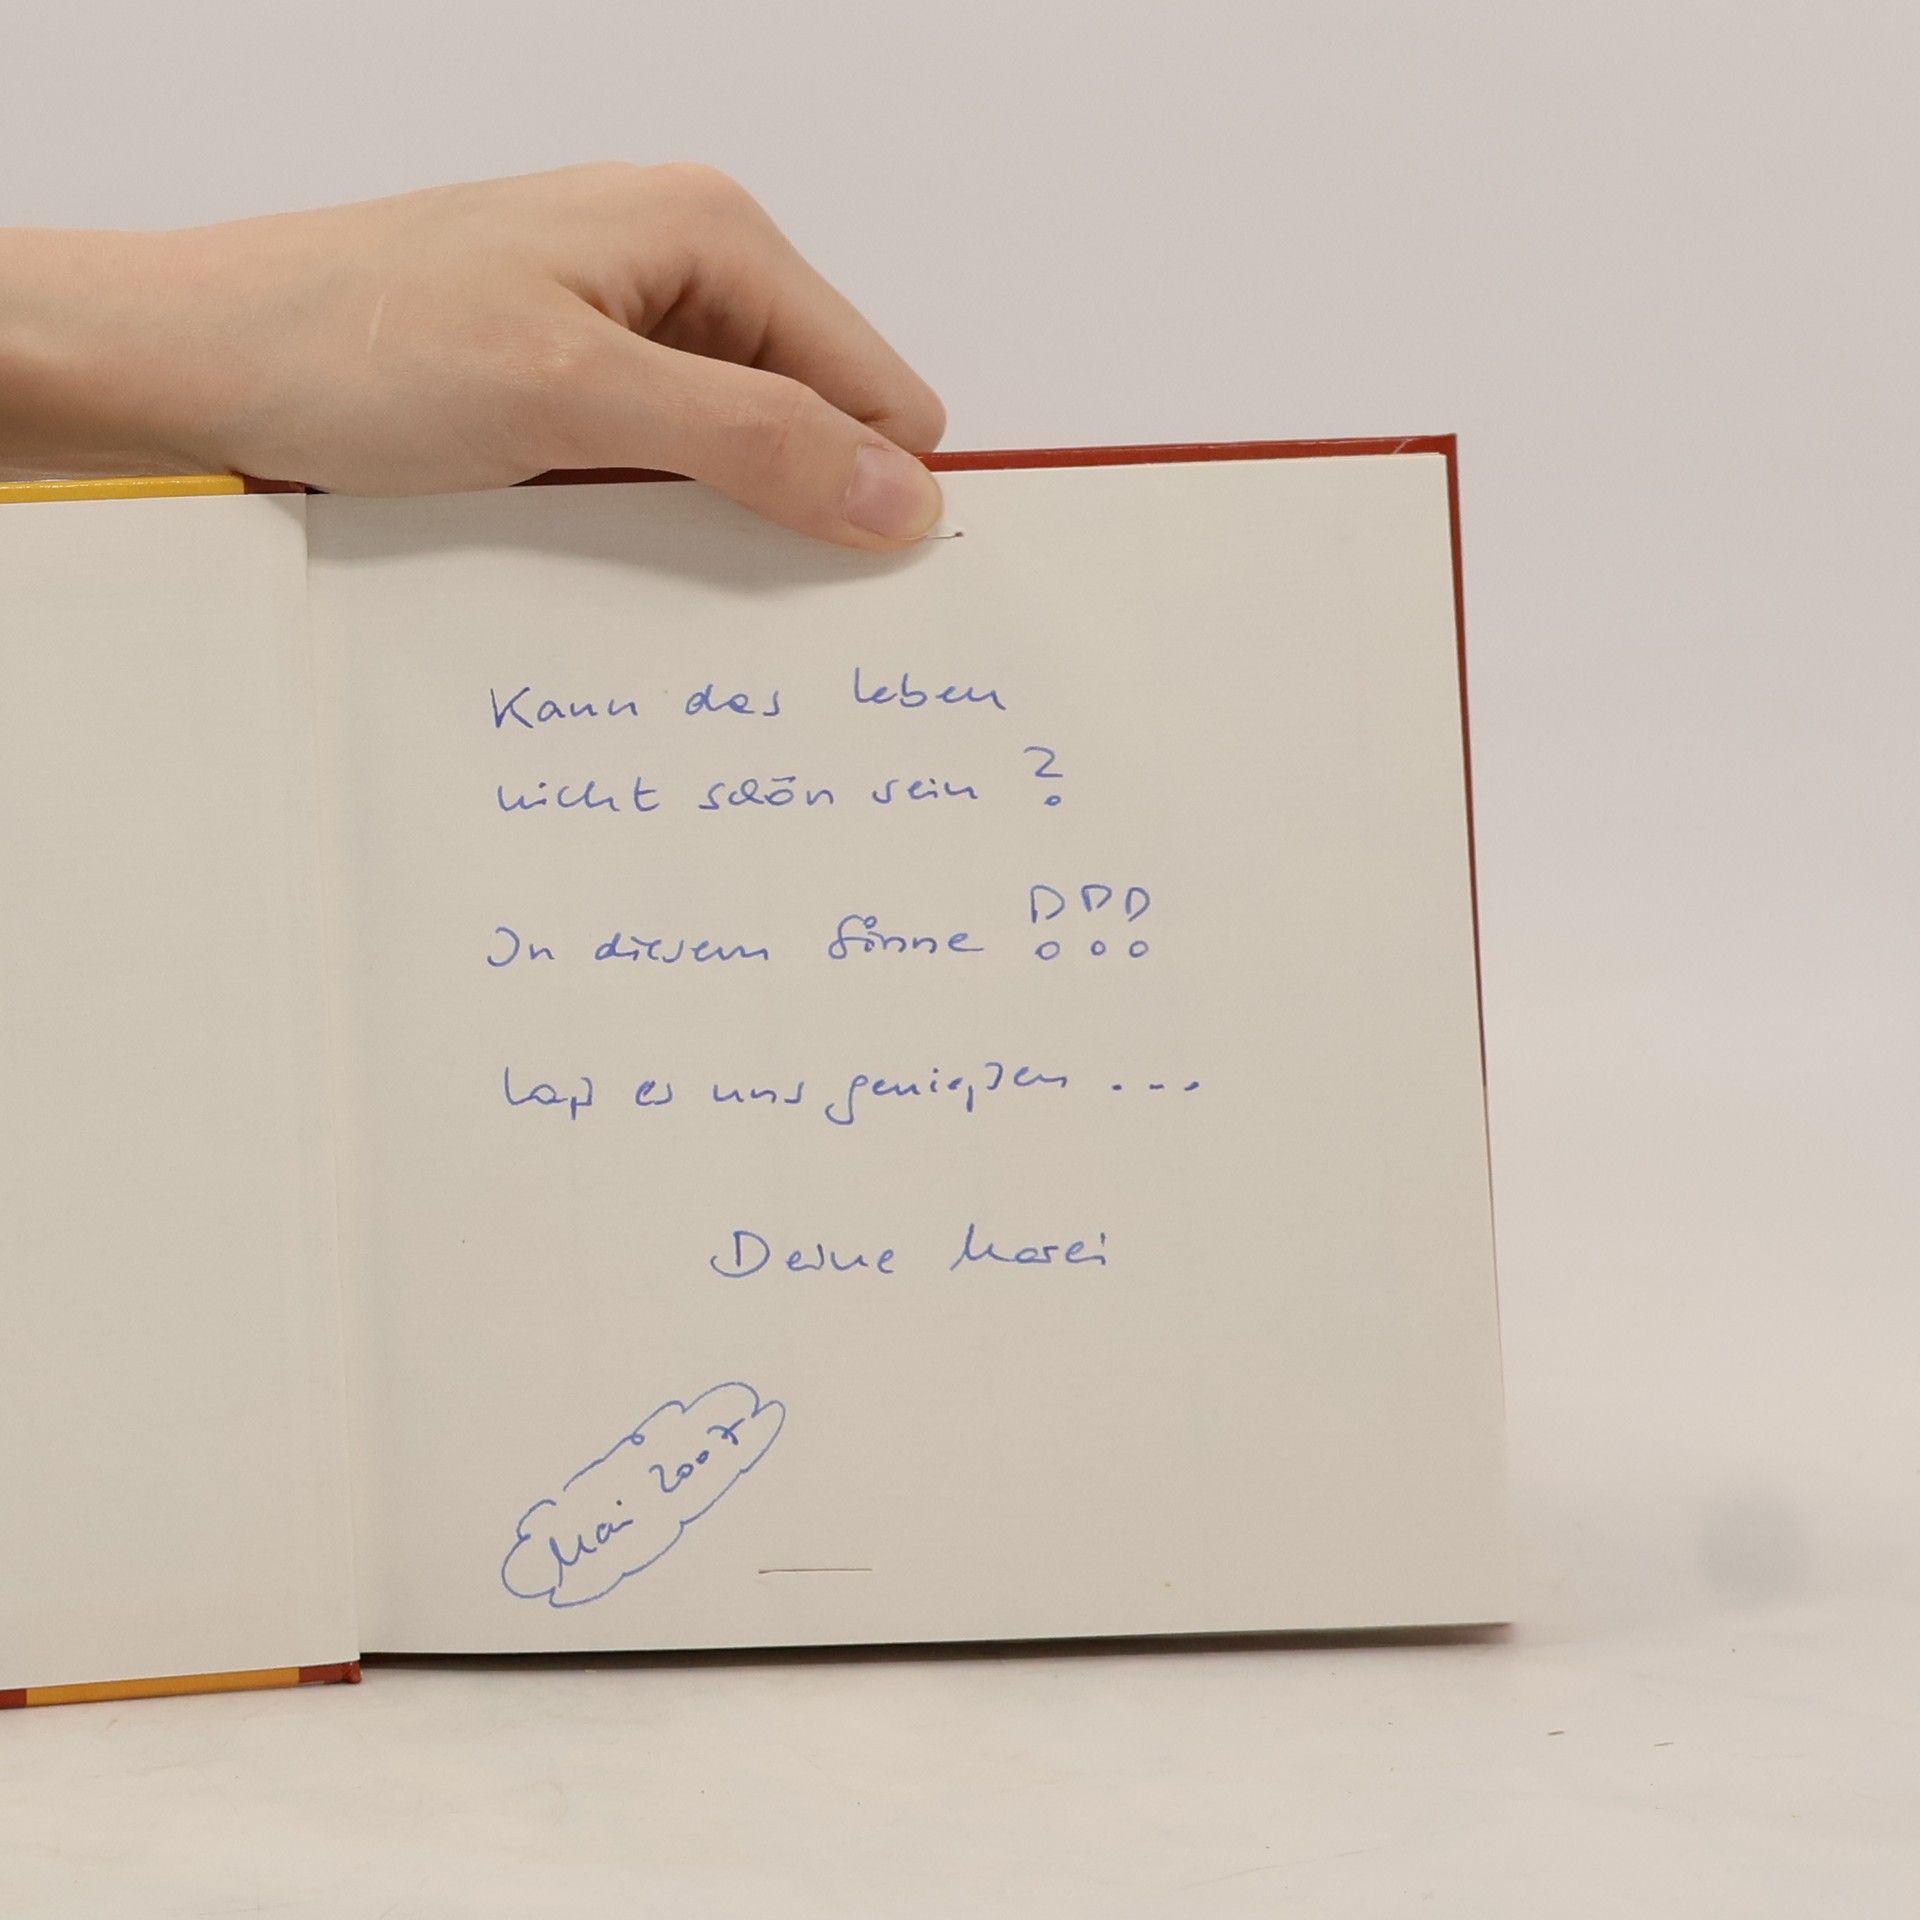 Kann das Leben
nicht schön sein?
In diesem Sinne!!!
Laß es uns genießen ...
Deine Marei
Mai 2007